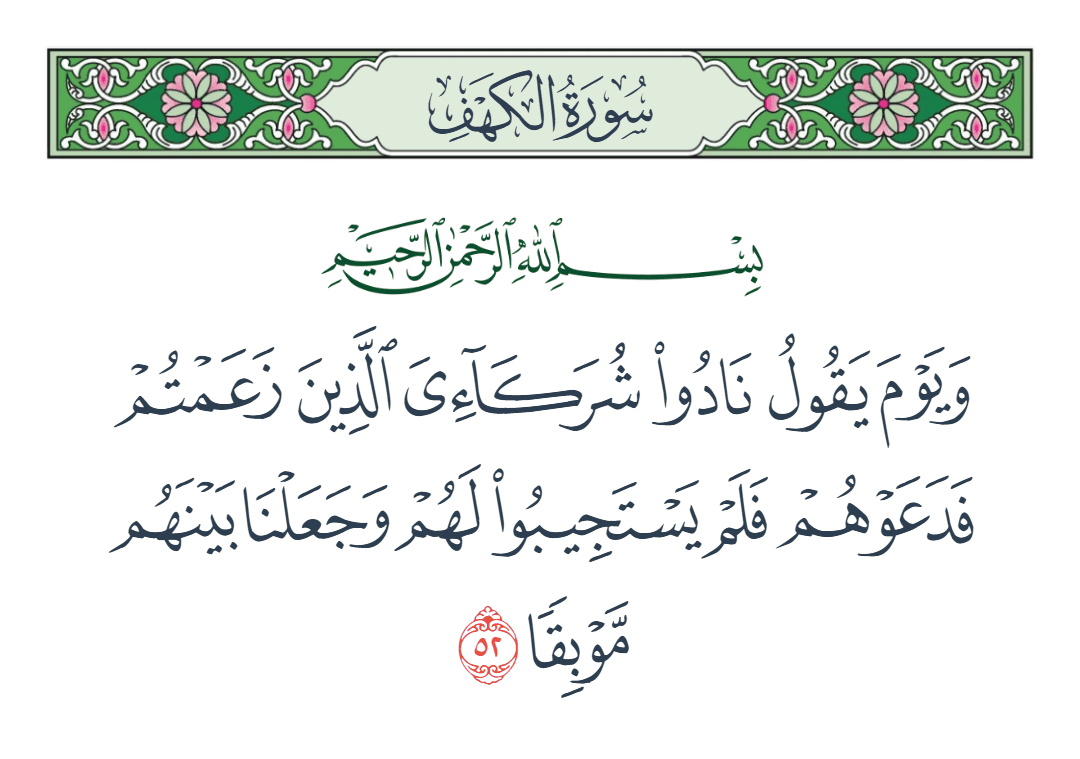 سُورَةُ الْكَهْفِ
بِسْمِ ٱللَّهِ ٱلرَّحْمَٰنِ ٱلرَّحِيمِ
وَيَوْمَ يَقُولُ نَادُوا۟ شُرَكَآءِىَ ٱلَّذِينَ زَعَمْتُمْ
فَدَعَوْهُمْ فَلَمْ يَسْتَجِيبُوا۟ لَهُمْ وَجَعَلْنَا بَيْنَهُم
مَّوْبِقًا ٥٢